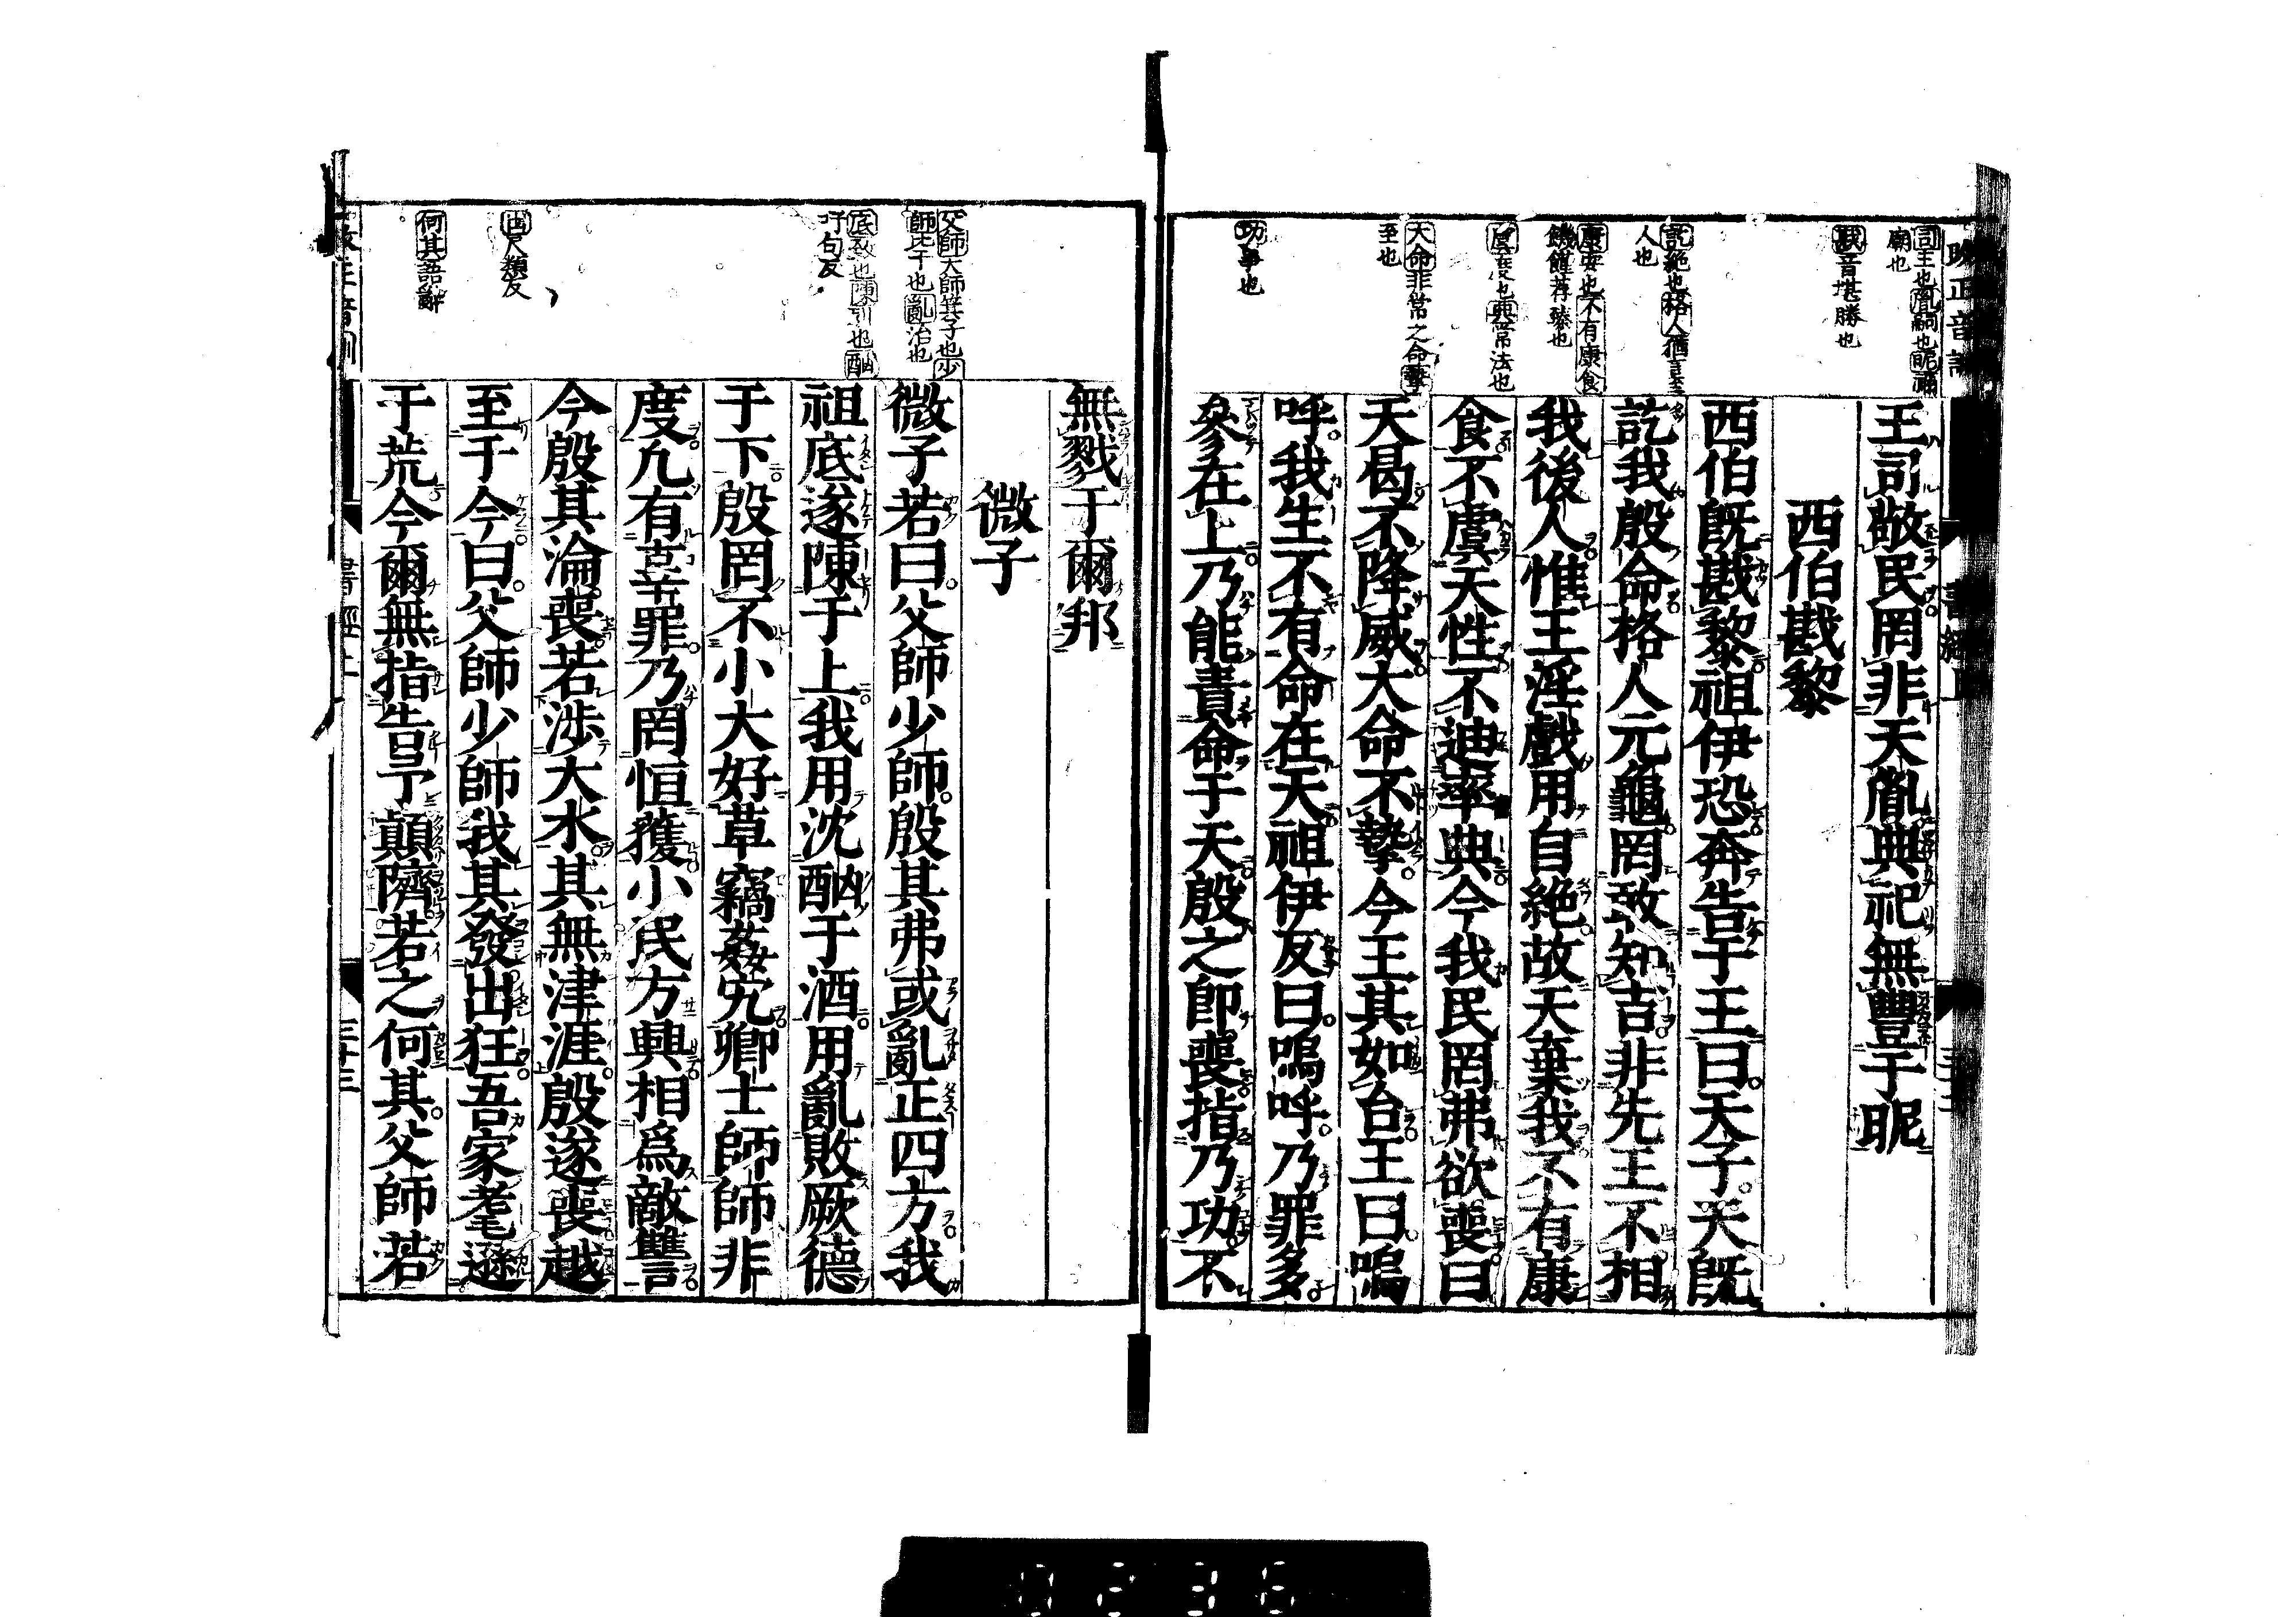 司主也胤嗣也昵禰
廟也
戡音堪勝也
訖絶也格人猶言至
人也
康安也不有康食
饑饉荐臻也
虞度也典常法也
大命非常之命摯
至也
功事也
王司敬民罔非天胤典祀無豐于昵
西伯戡黎
西伯旣戡黎祖伊恐奔告于王曰天子天旣
訖我殷命格人元龜罔敢知吉非先王不相
我後人惟王淫戲用自絶故天棄我不有康
食不虞天性不迪率典今我民罔弗欲喪曰
天曷不降威大命不摯今王其如台王曰嗚
呼我生不有命在天祖伊反曰嗚呼乃罪多
參在上乃能責命于天殷之卽喪指乃功不
父師太師箕子也少
師比干也亂治也
底致也陳列也酗
吁句反
何其語辭
無戮于爾邦
微子
微子若曰父師少師殷其弗或亂正四方我
祖底遂陳于上我用沈酗于酒用亂敗厥德
于下殷罔不小大好草竊姦宄卿士師師非
度凡有辜罪乃罔恒獲小民方興相爲敵讐
今殷其淪喪若涉大水其無津涯殷遂喪越
至于今曰父師少師我其發出狂吾家耄遜
于荒今爾無指告予顚隮若之何其父師若
書經上
三十三
0236